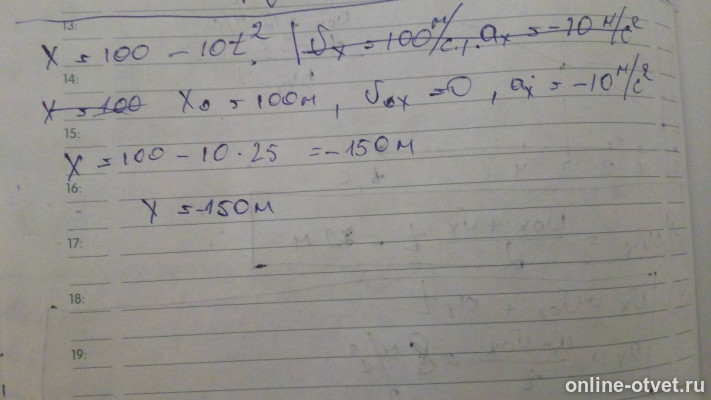 13:
X = 100 - 10t². | υx = 100 м/с, ax = -10 м/с²
14:
X = 100 X₀ = 100м, υ₀x = 0, ax = -10 м/с²
15:
X = 100 - 10·25 = -150м
16:
X = -150м
17:
18:
19:
online-otvet.ru